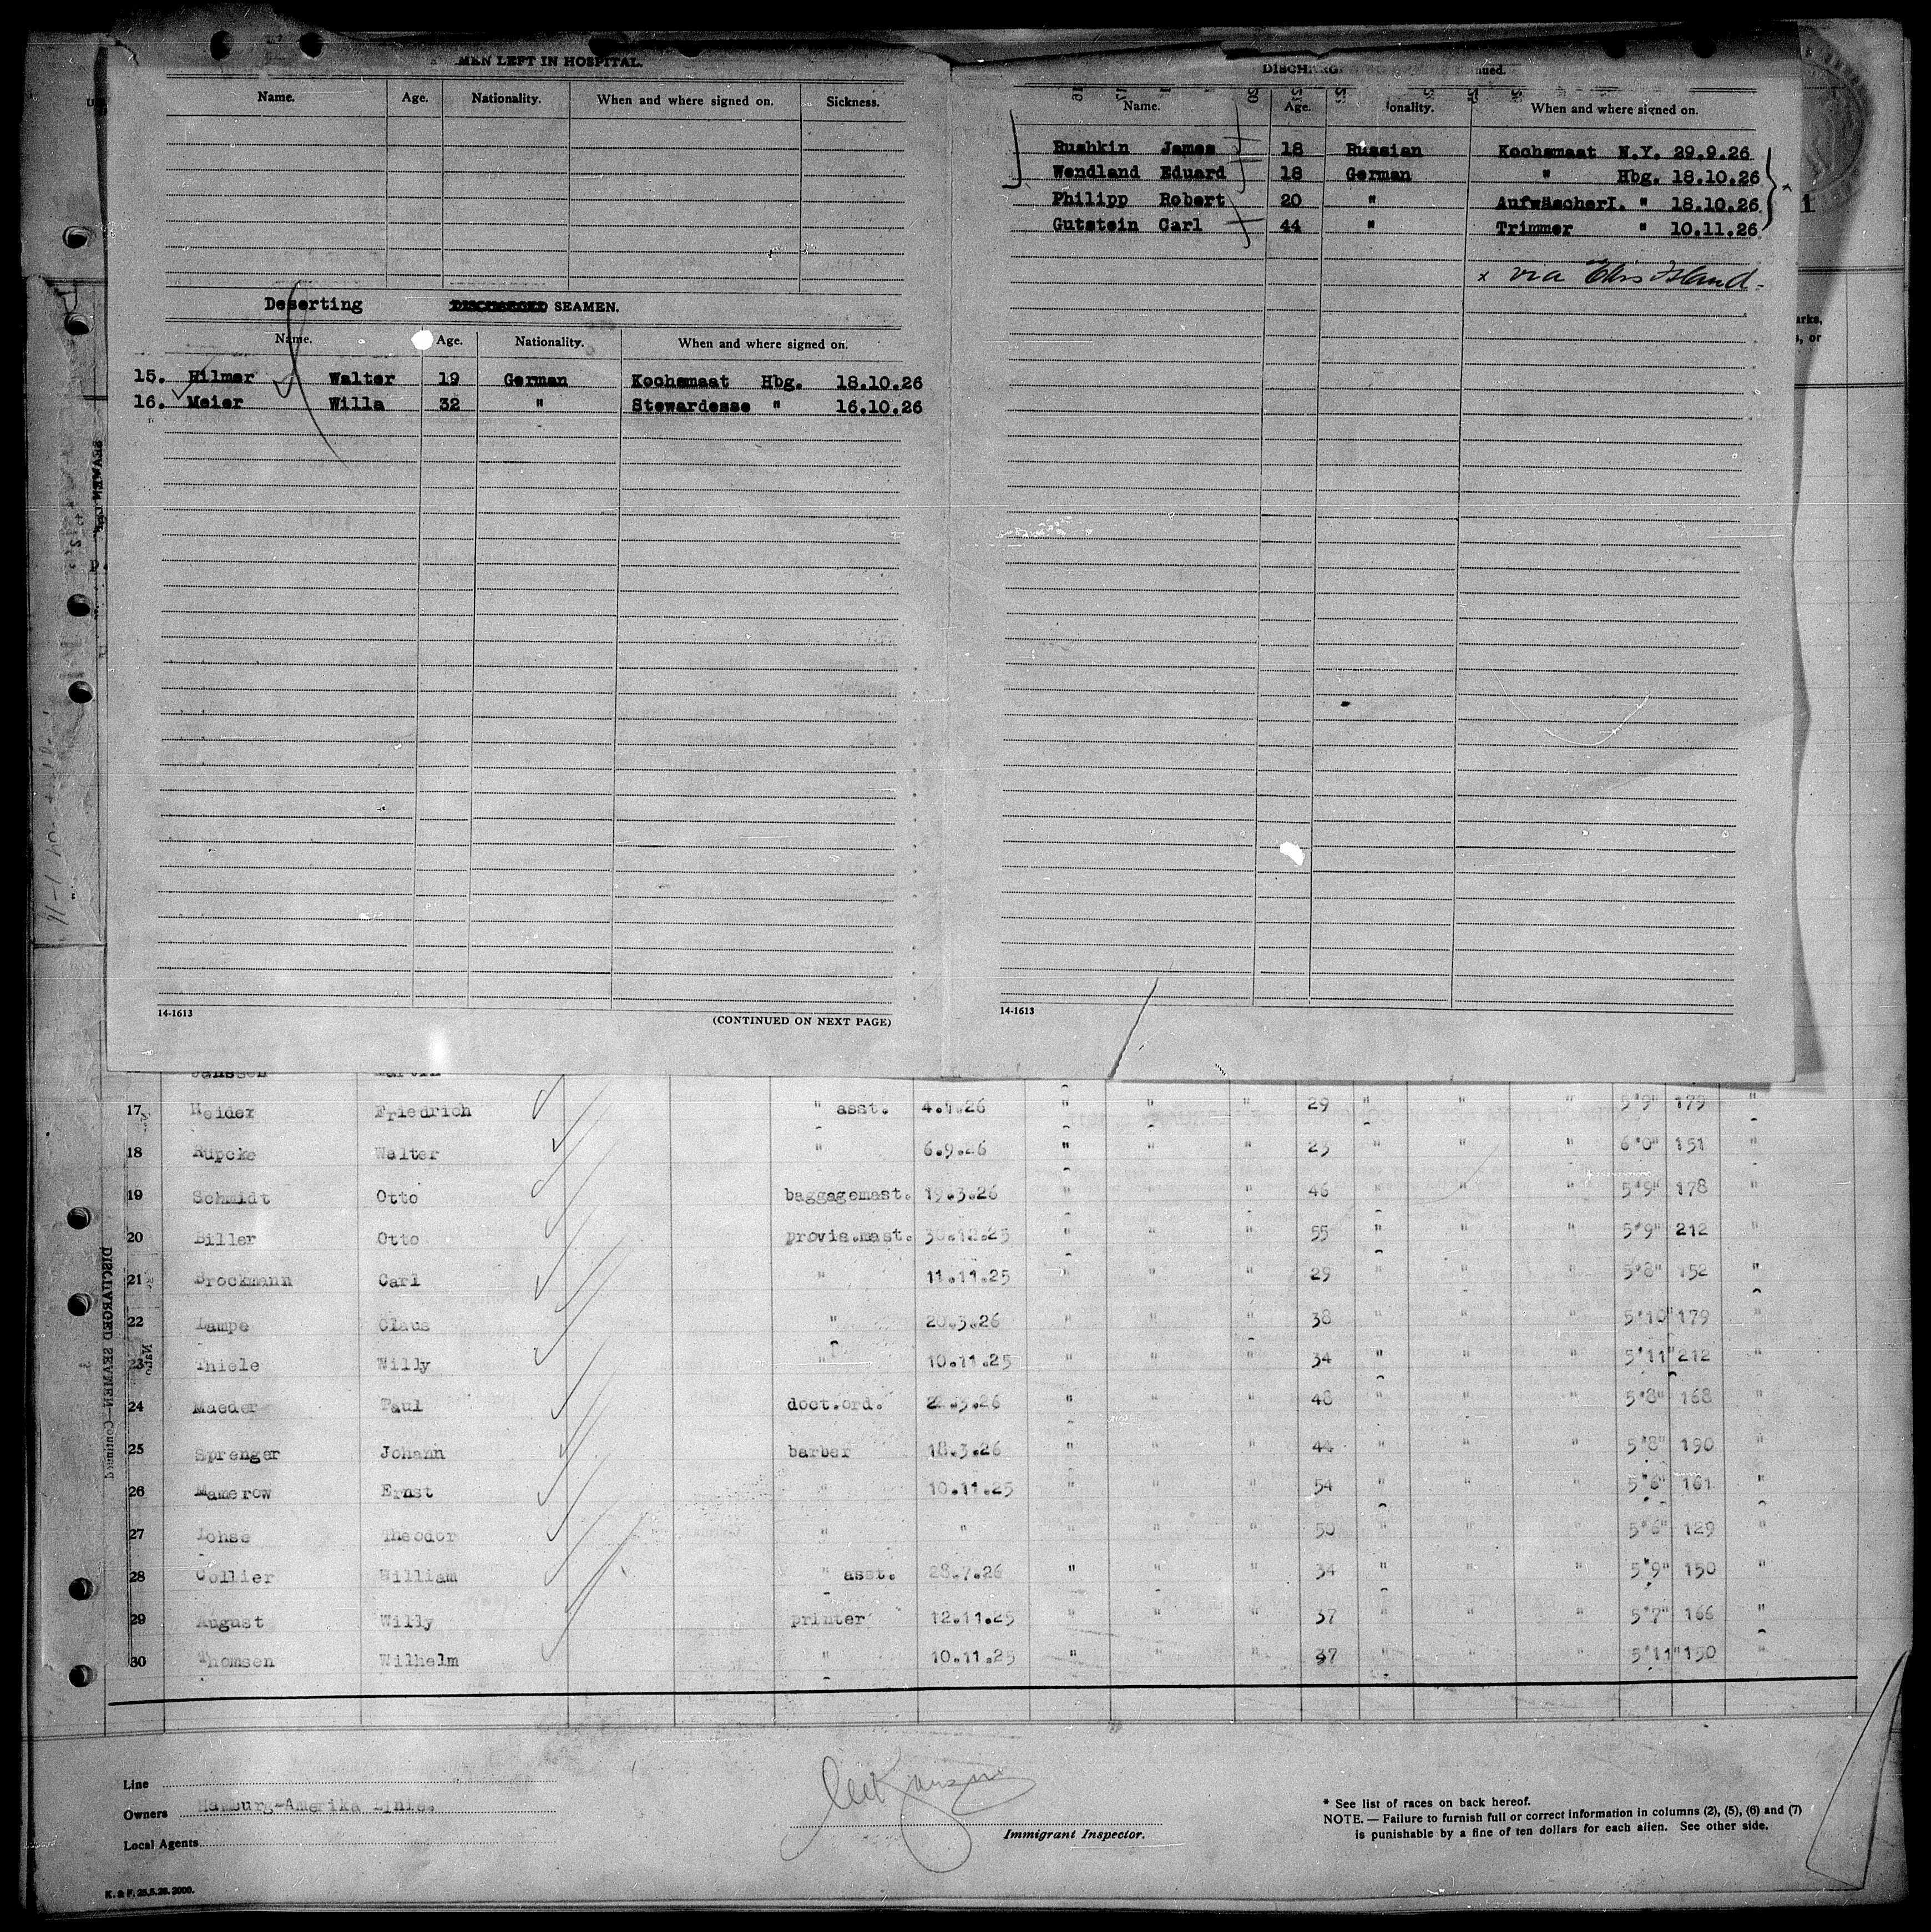 MEN LEFT IN HOSPITAL.
Name. Age. Nationality. When and where signed on. Sickness.
Deserting DISCHARGED SEAMEN.
Name. Age. Nationality. When and where signed on.
15. Hilmer Walter 19 German Kochsmaat Hbg. 18.10.26
16. Meier Willa 32 " Stewardesse " 16.10.26
14-1613
(CONTINUED ON NEXT PAGE)
Name. Age. ionality. When and where signed on.
Rushkin James 18 Russian Kochsmaat N.Y. 29.9.26
Wendland Eduard 18 German " Hbg. 18.10.26
Philipp Robert 20 " AufwäscherI. " 18.10.26
Gutstein Carl 44 " Trimmer " 10.11.26
x via Ellis Island.
14-1613
arks,
s, or
DISCHARGED SEAMEN—Continued
Janssen Martin
17 Heider Friedrich " asst. 4.4.26 " " " 29 " " " 5'9" 179 "
18 Rüpcke Walter " 6.9.26 " " " 23 " " " 6'0" 151 "
19 Schmidt Otto baggagemast. 19.3.26 " " " 46 " " " 5'9" 178 "
20 Biller Otto provis.mast. " " " 55 " " " 5'9" 212 "
21 Brockmann Carl " 11.11.25 " " " 29 " " " 5'8" 152 "
22 Lampe Claus " 20.3.26 " " " 38 " " " 5'10" 179 "
23 Thiele Willy " 10.11.25 " " " 34 " " " 5'11" 212 "
24 Maeder Paul doct.ord. 22.3.26 " " " 48 " " " 5'8" 168 "
25 Sprenger Johann barber 18.3.26 " " " 44 " " " 5'8" 190 "
26 Mamerow Ernst " 10.11.25 " " " 54 " " " 5'6" 161 "
27 Lohse Theodor " " " " " 50 " " " 5'6" 129 "
28 Collier William " asst. 28.7.26 " " " 34 " " " 5'9" 150 "
29 August Willy printer 12.11.25 " " " 37 " " " 5'7" 166 "
30 Thomsen Wilhelm " 10.11.25 " " " 37 " " " 5'11" 150 "
Line
Owners Hamburg-Amerika Linie.
Local Agents
Immigrant Inspector.
* See list of races on back hereof.
NOTE. — Failure to furnish full or correct information in columns (2), (5), (6) and (7)
is punishable by a fine of ten dollars for each alien. See other side.
K. & F. 25.5.26. 2000.